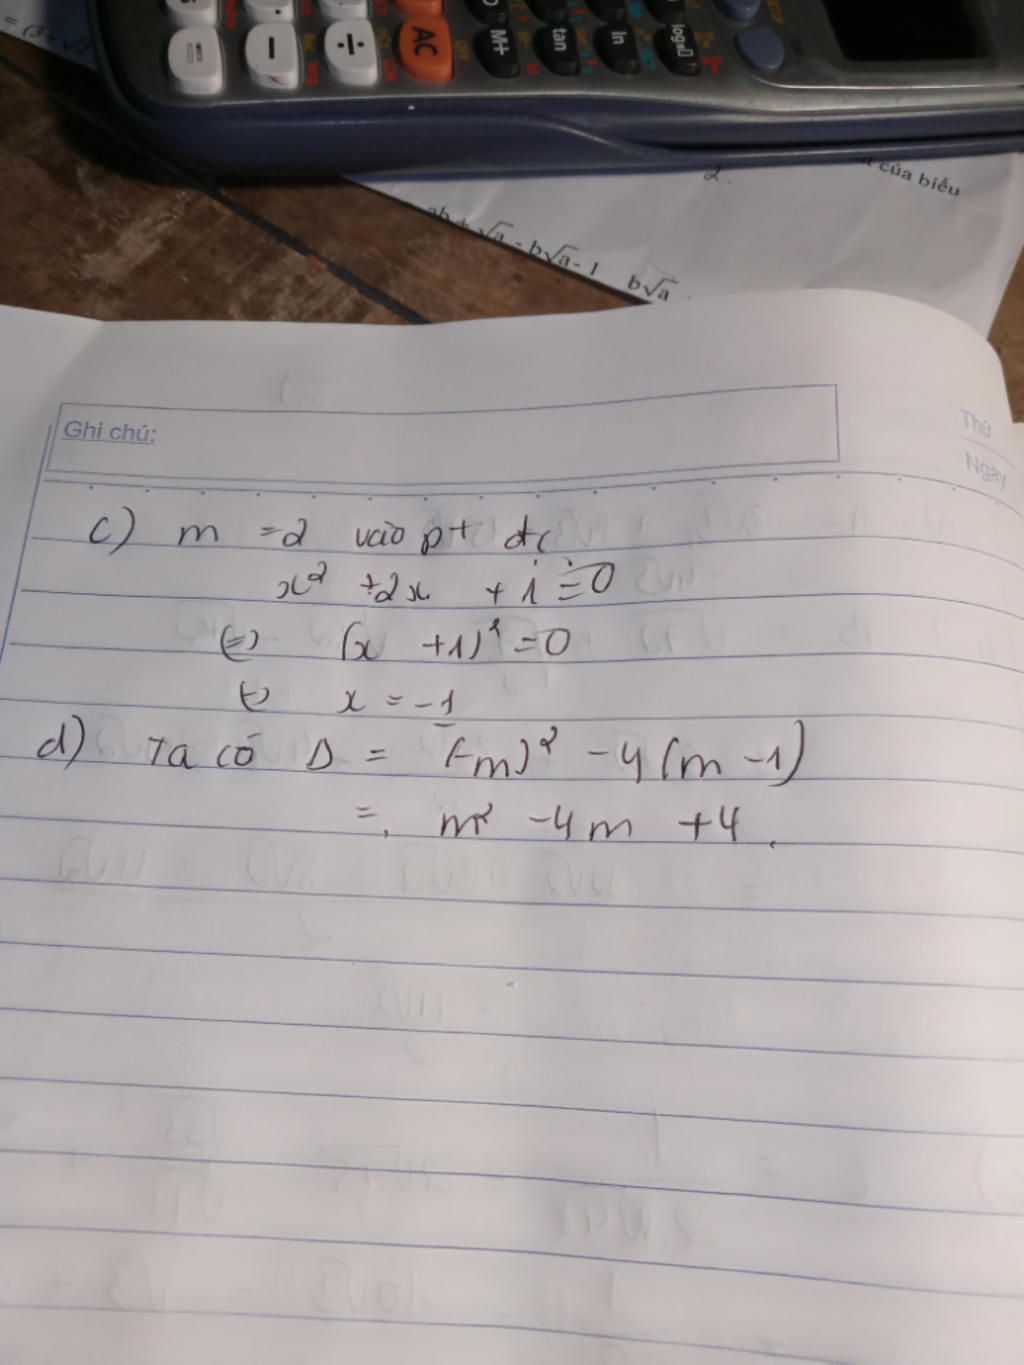 AC
M+
tan
ln
log
OFF
2.
của biểu
ab + √a - b√a - 1
b√a
Ghi chú:
Thứ
Ngày
c) m = 2 vào pt đc
x² + 2x + 1 = 0
(=) (x + 1)² = 0
(=) x = -1
d) Ta có Δ = (-m)² - 4(m - 1)
= m² - 4m + 4.